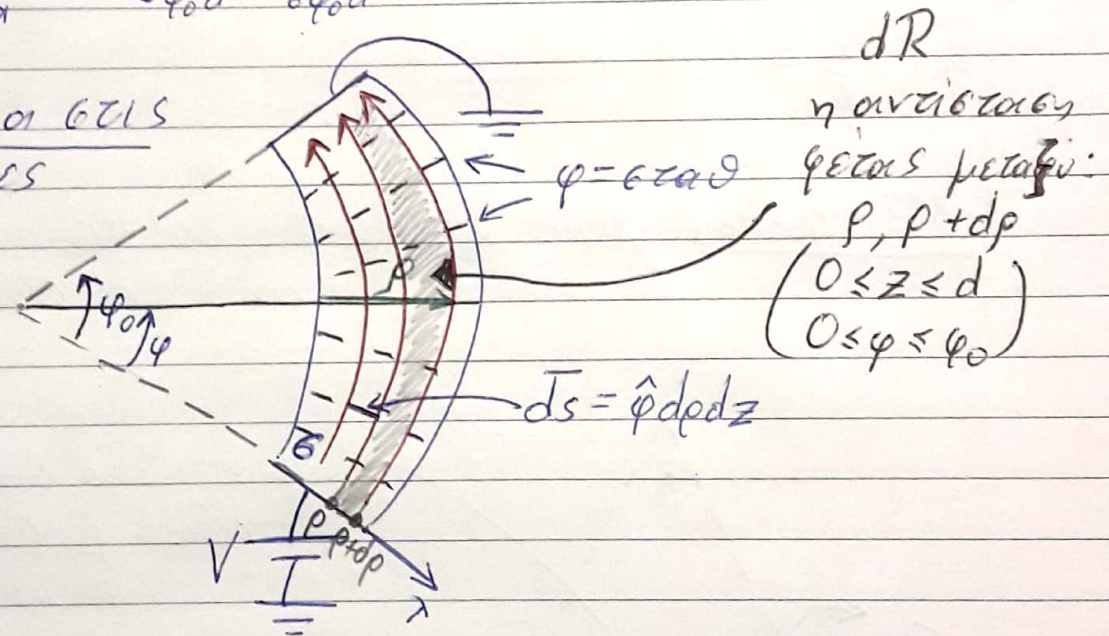 φ₀α
α στις
dR
η αντίσταση
φέτας μεταξύ:
ρ, ρ+dρ
(0 ≤ z ≤ d
0 ≤ φ ≤ φ₀)
φ = σταθ
ρ
φ₀
φ
d̅s̅ = φ̂dρdz
σ
ρ
ρ+dρ
V